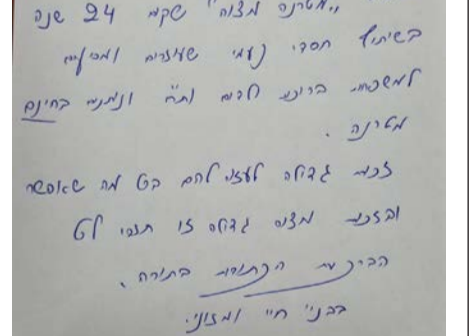 „מטרנה מצוה" שקם 24 שנה
בשיתוף חסדי נעמי שעוזרים ומסייעים
למשפחות ברוכות ילדים ות"ח ונותנים בחינם
מטרנה.
זכות גדולה לעזור להם בכל מה שאפשר
ובזכות מצוה גדולה זו תזכו לכל
הברכות הכתובות בתורה.
בבני חיי ומזוני.